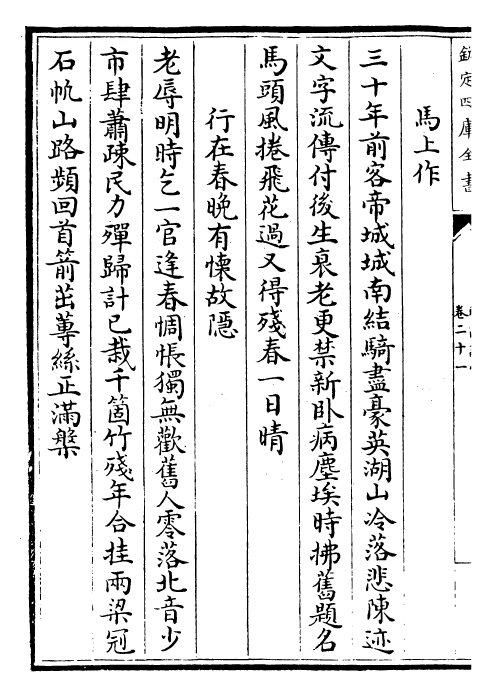 欽定四庫全書
卷二十一
馬上作
三十年前客帝城城南結騎盡豪英湖山冷落悲陳迹
文字流傳付後生衰老更禁新卧病塵埃時拂舊題名
馬頭風捲飛花過又得殘春一日晴
行在春晚有懐故隱
老辱明時乞一官逢春惆悵獨無歡舊人零落北音少
市肆蕭疎民力殫歸計已栽千箇竹殘年合挂兩梁冠
石帆山路頻回首箭茁蓴絲正滿槃